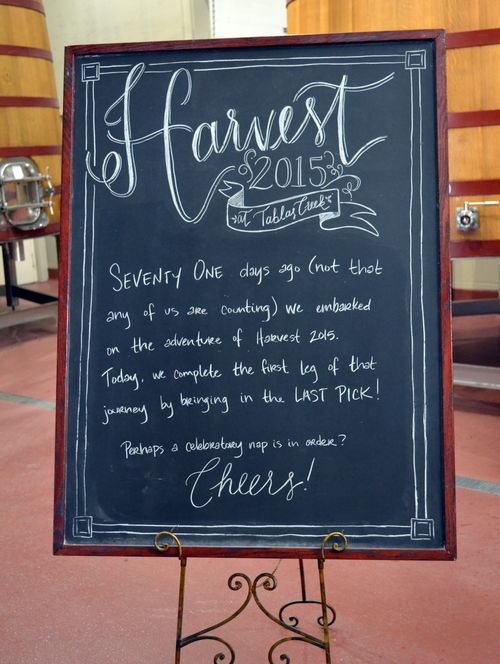 Harvest
2015
at Tablas Creek
SEVENTY ONE days ago (not that
any of us are counting) we embarked
on the adventure of Harvest 2015.
Today, we complete the first leg of that
journey by bringing in the LAST PICK!
Perhaps a celebratory nap is in order?
Cheers!